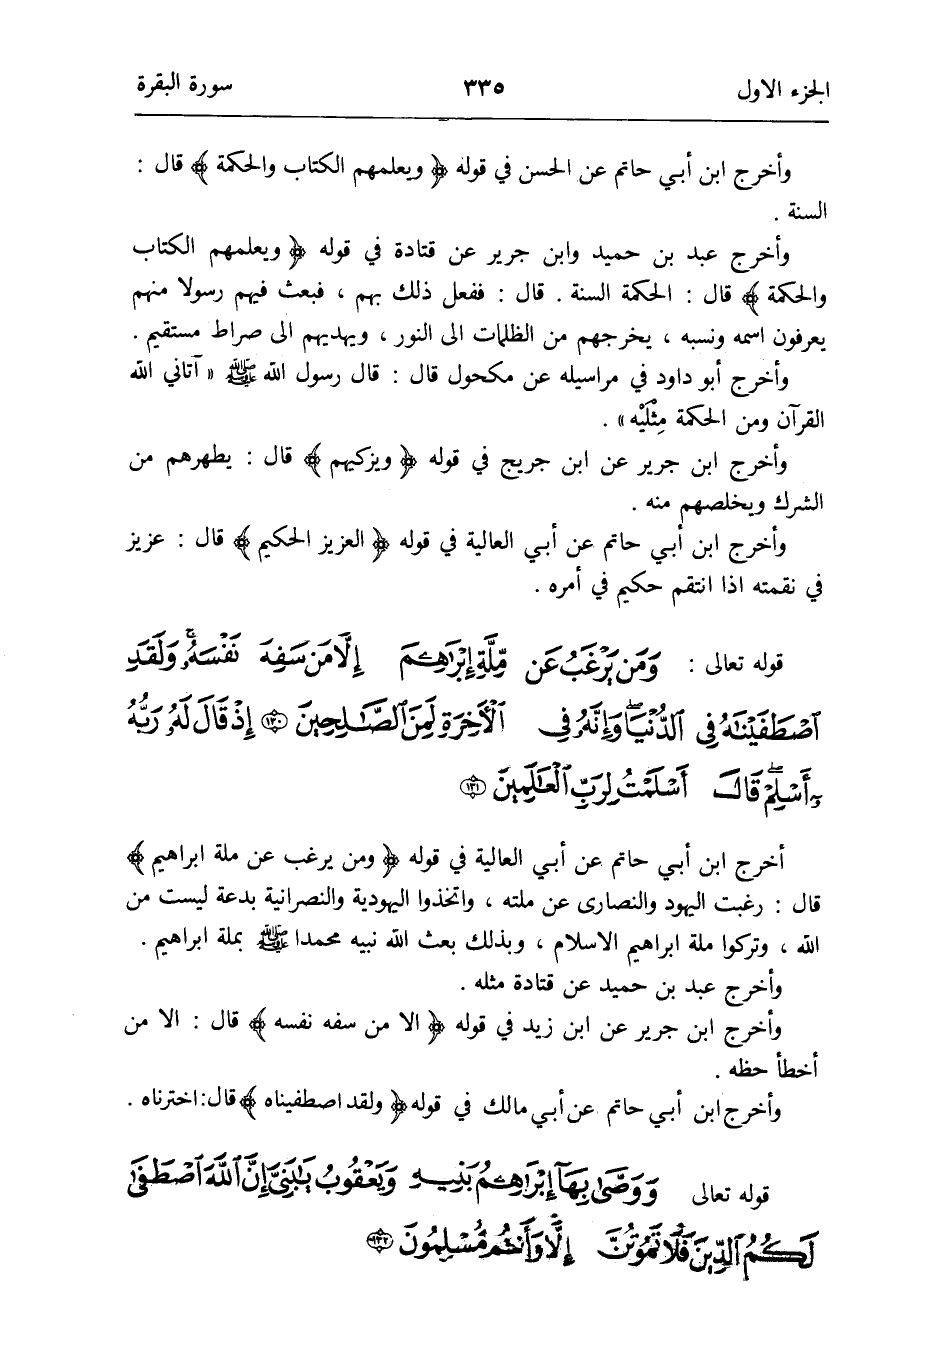 الجزء الاول ٣٣٥ سورة البقرة
وأخرج ابن أبي حاتم عن الحسن في قوله ﴿ ويعلمهم الكتاب والحكمة ﴾ قال :
السنة .
وأخرج عبد بن حميد وابن جرير عن قتادة في قوله ﴿ ويعلمهم الكتاب
والحكمة ﴾ قال : الحكمة السنة . قال : ففعل ذلك بهم ، فبعث فيهم رسولا منهم
يعرفون اسمه ونسبه ، يخرجهم من الظلمات الى النور ، ويهديهم الى صراط مستقيم .
وأخرج أبو داود في مراسيله عن مكحول قال : قال رسول الله ﷺ « آتاني الله
القرآن ومن الحكمة مِثْلَيْه » .
وأخرج ابن جرير عن ابن جريج في قوله ﴿ ويزكيهم ﴾ قال : يطهرهم من
الشرك ويخلصهم منه .
وأخرج ابن أبي حاتم عن أبي العالية في قوله ﴿ العزيز الحكيم ﴾ قال : عزيز
في نقمته اذا انتقم حكيم في أمره .
قوله تعالى : وَمَن يَرْغَبُ عَن مِّلَّةِ إِبْرَاهِـۧمَ إِلَّا مَن سَفِهَ نَفْسَهُۥۚ وَلَقَدِ
ٱصْطَفَيْنَـٰهُ فِي ٱلدُّنْيَاۖ وَإِنَّهُۥ فِي ٱلْأٓخِرَةِ لَمِنَ ٱلصَّـٰلِحِينَ ١٣٠ إِذْ قَالَ لَهُۥ رَبُّهُ
ۥٓ أَسْلِمْۖ قَالَ أَسْلَمْتُ لِرَبِّ ٱلْعَـٰلَمِينَ ١٣١
أخرج ابن أبي حاتم عن أبي العالية في قوله ﴿ ومن يرغب عن ملة ابراهيم ﴾
قال : رغبت اليهود والنصارى عن ملته ، واتخذوا اليهودية والنصرانية بدعة ليست من
الله ، وتركوا ملة ابراهيم الاسلام ، وبذلك بعث الله نبيه محمدا ﷺ بملة ابراهيم .
وأخرج عبد بن حميد عن قتادة مثله .
وأخرج ابن جرير عن ابن زيد في قوله ﴿ الا من سفه نفسه ﴾ قال : الا من
أخطأ حظه .
وأخرج ابن أبي حاتم عن أبي مالك في قوله ﴿ ولقد اصطفيناه ﴾ قال : اخترناه .
قوله تعالى وَوَصَّىٰ بِهَآ إِبْرَاهِـۧمُ بَنِيهِ وَيَعْقُوبُ يَـٰبَنِيَّ إِنَّ ٱللَّهَ ٱصْطَفَىٰ
لَكُمُ ٱلدِّينَ فَلَا تَمُوتُنَّ إِلَّا وَأَنتُم مُّسْلِمُونَ ١٣٢